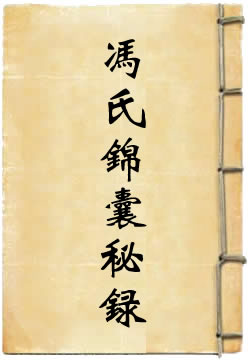 馮氏錦囊秘録